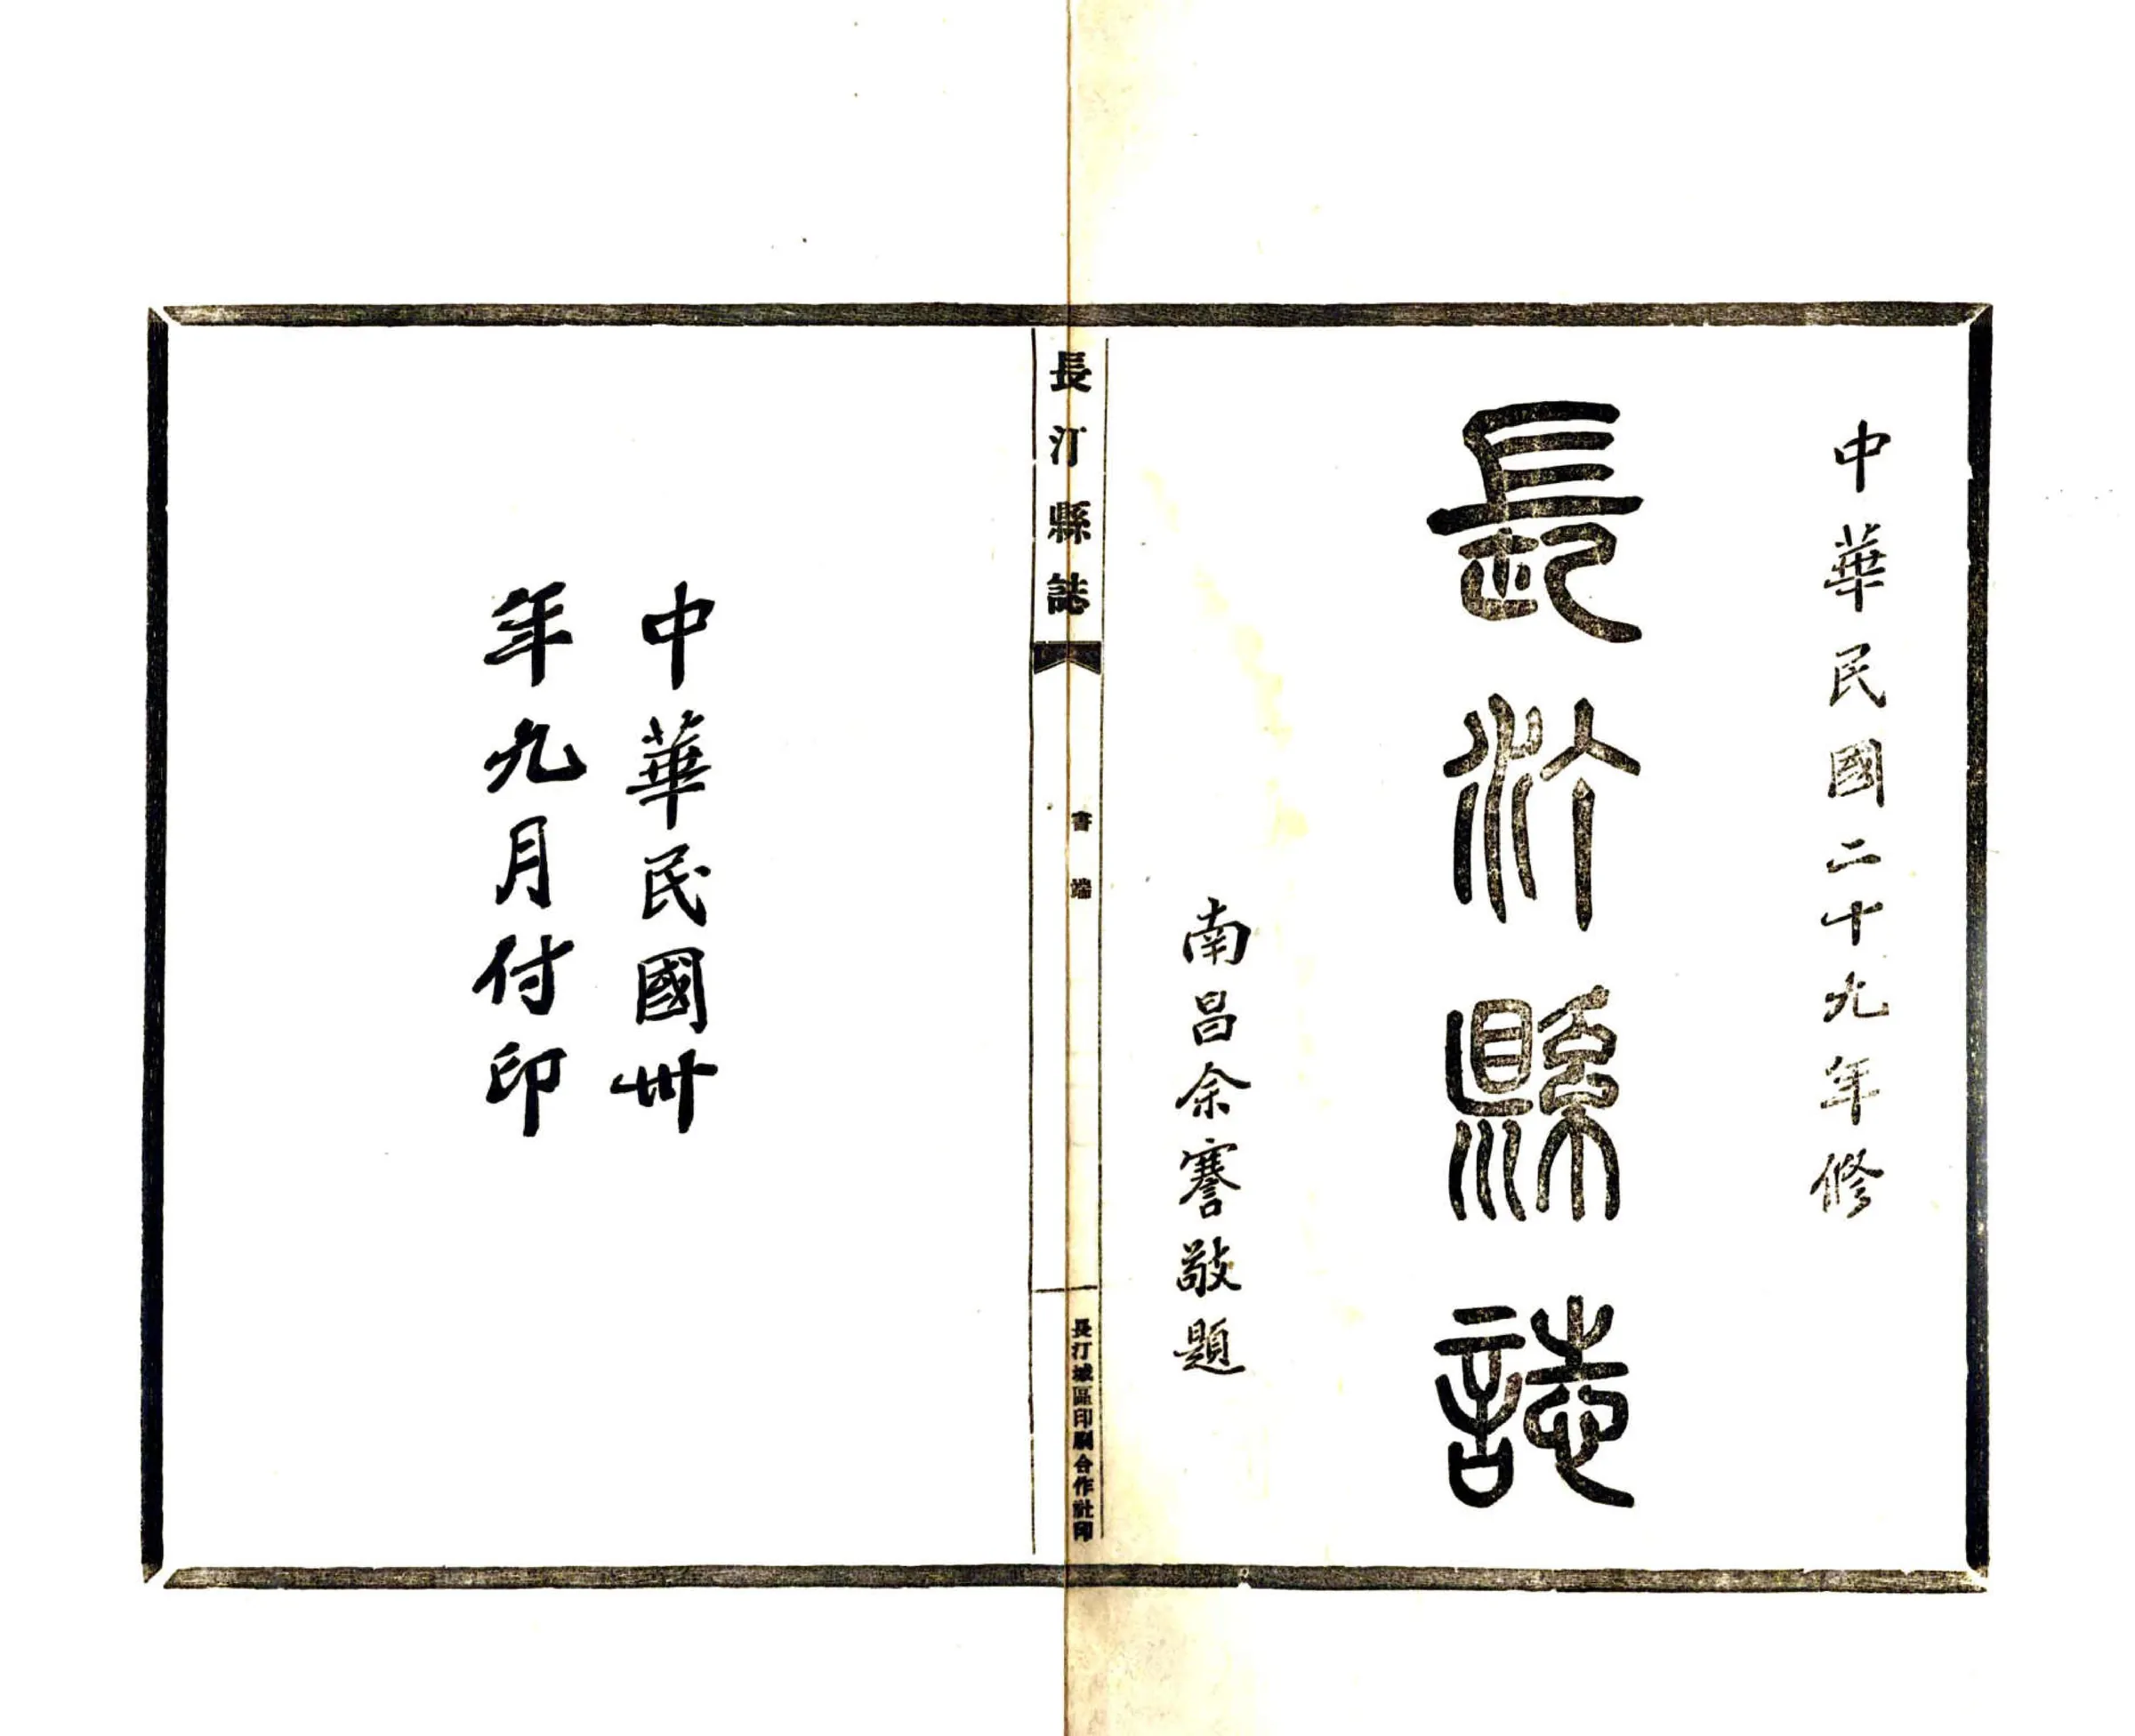 中華民國二十九年修
長汀縣誌
南昌余謇敬題
長汀縣誌
書端
長汀城區印刷合作社印
中華民國卅
年九月付印